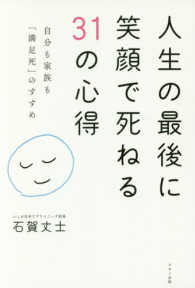 人生の最後に
笑顔で死ねる
31の心得
自分も家族も
「満足死」のすすめ
石賀丈士